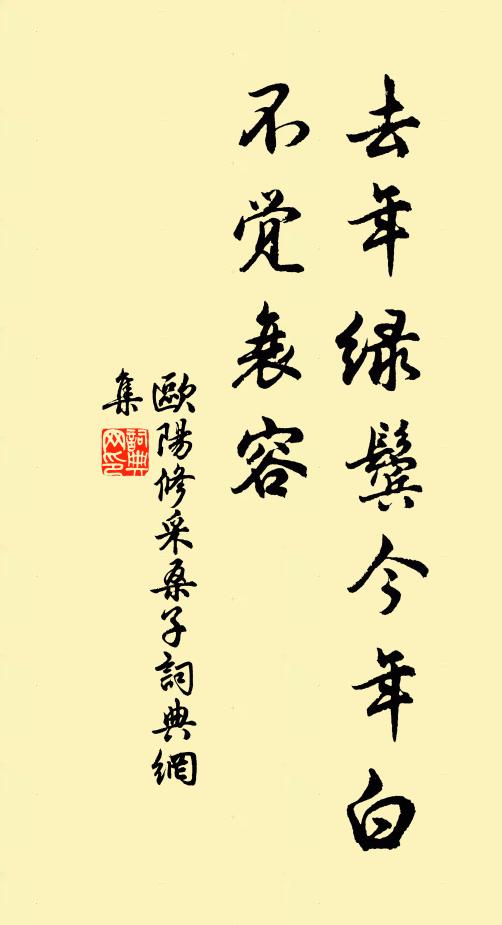 去年绿鬓今年白
不觉衰容
歐陽修采桑子詞典網
集
詞典
网印